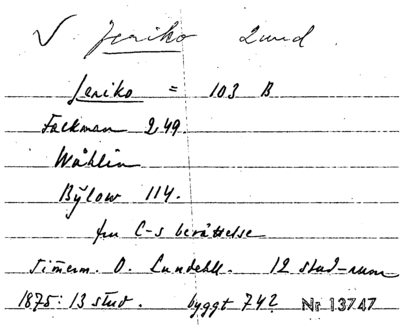 ✓ Jeriko Lund
Jeriko = 103 B
Falkman 2,49.
Wåhlin
Bÿlow 114.
fru C-s berättelse
Timerm. O. Lundahl. 12 stud-rum
1875: 13 stud. byggt 74?  Nr 13747